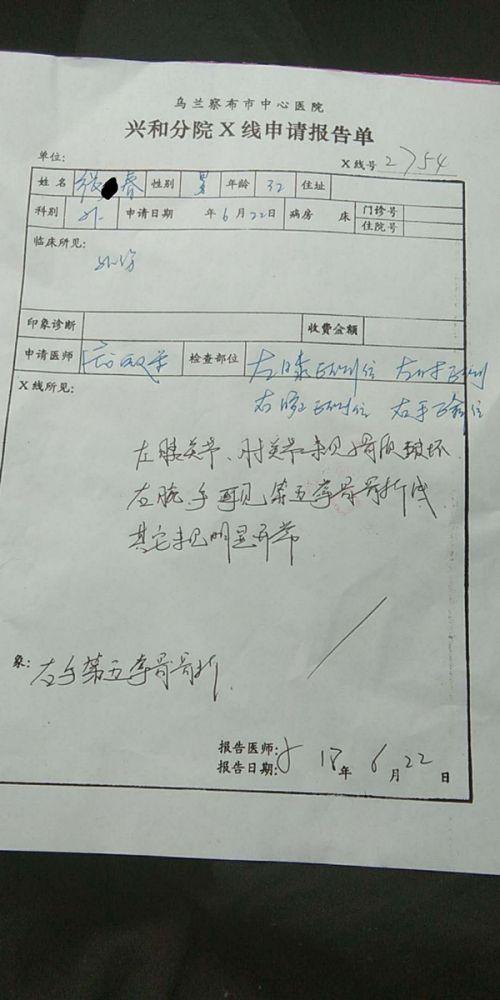 乌兰察布市中心医院
兴和分院X线申请报告单
单位: X线号 2754
姓名 张 春 性别 男 年龄 32 住址
科别 外 申请日期 年6月22日 病房 床 门诊号
住院号
临床所见:
外伤
印象诊断 收费金额
申请医师 检查部位 左膝正侧位 左肘正侧
右腕正侧位 右手正斜位
X线所见:
左膝关节、肘关节未见骨质破坏
左腕、手再见第五掌骨骨折线
其它未见明显异常
象: 左手第五掌骨骨折.
报告医师:
报告日期: 18年6月22日